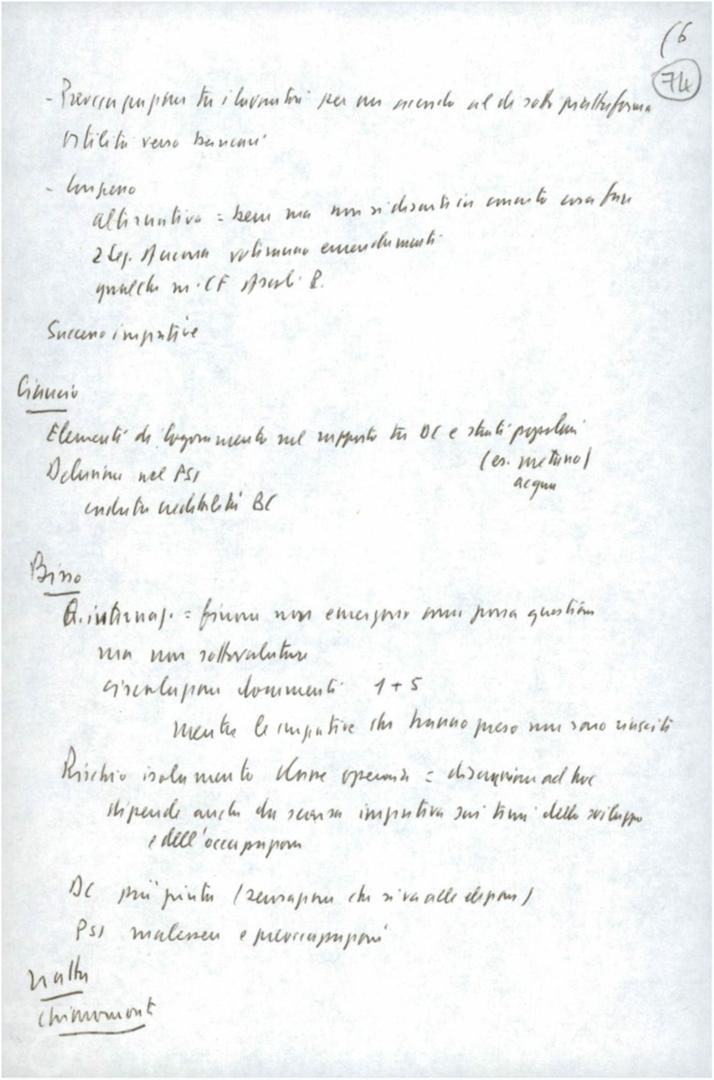 (6
74
- Preoccupazioni tra i lavoratori per un accordo al di sotto piattaforma
ostilità verso
- Congresso
alternativa = bene ma non si discute in concreto cosa fare
2 Sez. Ancona votarono emendamenti
qualche m. CF Ascoli P.
Successo iniziative
Ciancio
Elementi di logoramento nel rapporto tra DC e strati popolari
(es. metano)
acqua
Delusione nel PSI
caduta credibilità DC
Bisso
Q. internaz. = finora non emergono come grossa questione
ma non sottovalutare
circolazione documenti 1+5
mentre le iniziative che hanno preso non sono riuscite
Rischio isolamento classe operaia = discussione ad hoc
dipende anche da scarsa iniziativa sui temi dello sviluppo
e dell'occupazione
DC più (sensazione che si va alle elezioni)
PSI malessere e preoccupazioni
Natta
Chiaromonte